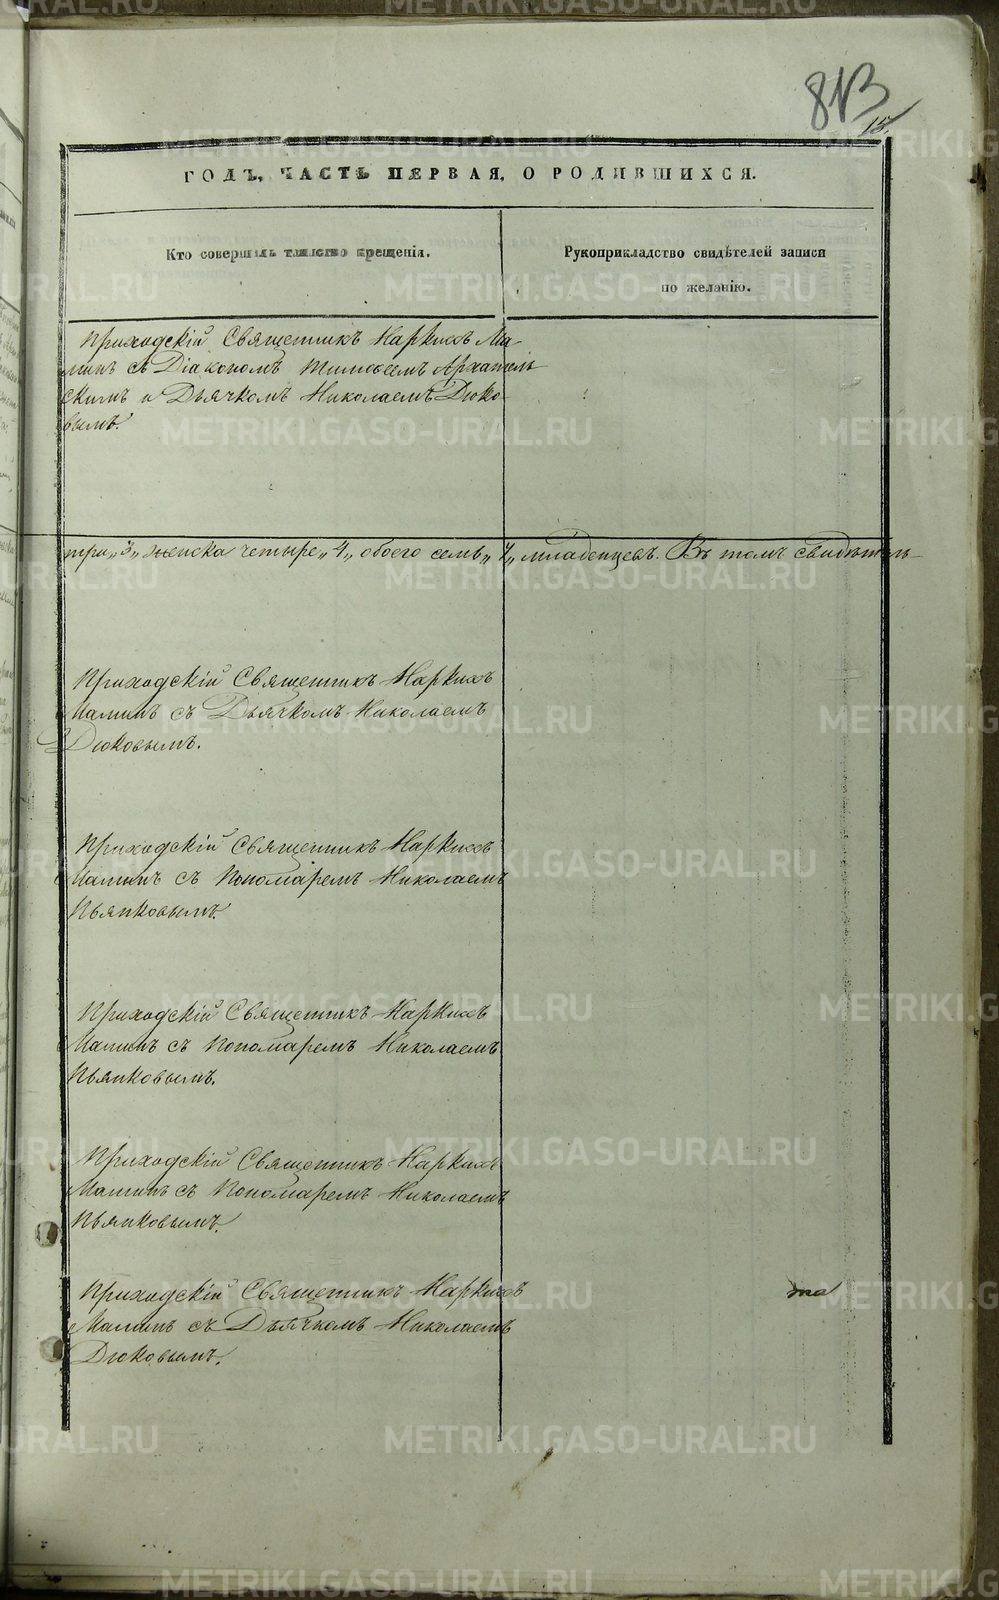 813
15.
ГОДЪ, ЧАСТЬ ПЕРВАЯ, О РОДИВШИХСЯ.
Кто совершалъ таинство крещенія.
Рукоприкладство свидѣтелей записи
по желанію.
Приходскій Священникъ Наркисъ Ма-
минъ съ Діакономъ Тимоѳеемъ Архангель
скимъ и Дьячкомъ Николаемъ Дюко-
вымъ.
три „3„ женска четыре „4„ обоего семь „7„ младенцевъ. Въ томъ свидѣтель-
Приходскій Священникъ Наркисъ
Маминъ съ Дьячкомъ Николаемъ
Дюковымъ.
Приходскій Священникъ Наркисъ
Маминъ съ Пономаремъ Николаемъ
Пьянковымъ.
Приходскій Священникъ Наркисъ
Маминъ съ Пономаремъ Николаемъ
Пьянковымъ.
Приходскій Священникъ Наркисъ
Маминъ съ Пономаремъ Николаемъ
Пьянковымъ.
Приходскій Священникъ Наркисъ
Маминъ съ Дьячкомъ Николаемъ
Дюковымъ.
METRIKI.GASO-URAL.RU